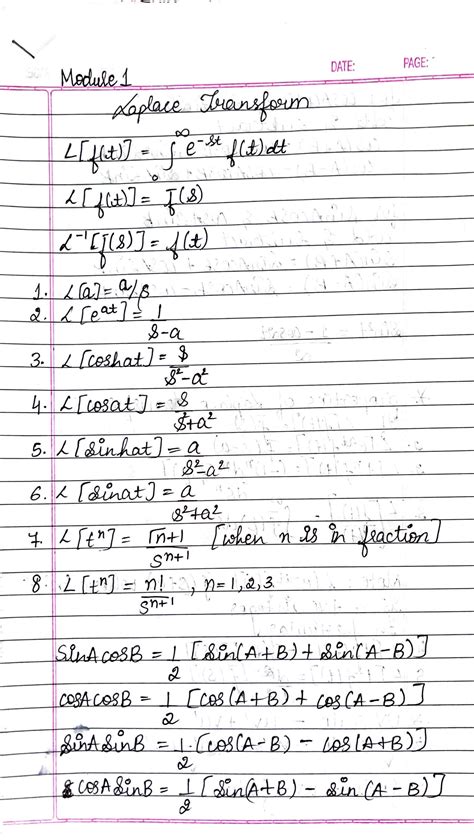 DATE: PAGE:
Module 1
Laplace Transform
L[f(t)] = ∫₀^∞ e^{-st} f(t)dt
L[f(t)] = f̄(s)
L⁻¹[f̄(s)] = f(t)
1. L[a] = a/s
2. L[e^{at}] = 1/(s-a)
3. L[coshat] = s/(s²-a²)
4. L[cosat] = s/(s²+a²)
5. L[sinhat] = a/(s²-a²)
6. L[sinat] = a/(s²+a²)
7. L[tⁿ] = Γn+1/s^{n+1} [when n is in fraction]
8. L[tⁿ] = n!/s^{n+1}, n=1,2,3.
SinAcosB = 1/2 [sin(A+B) + sin(A-B)]
cosAcosB = 1/2 [cos(A+B) + cos(A-B)]
sinAsinB = 1/2 [cos(A-B) - cos(A+B)]
cosAsinB = 1/2 [sin(A+B) - sin(A-B)]